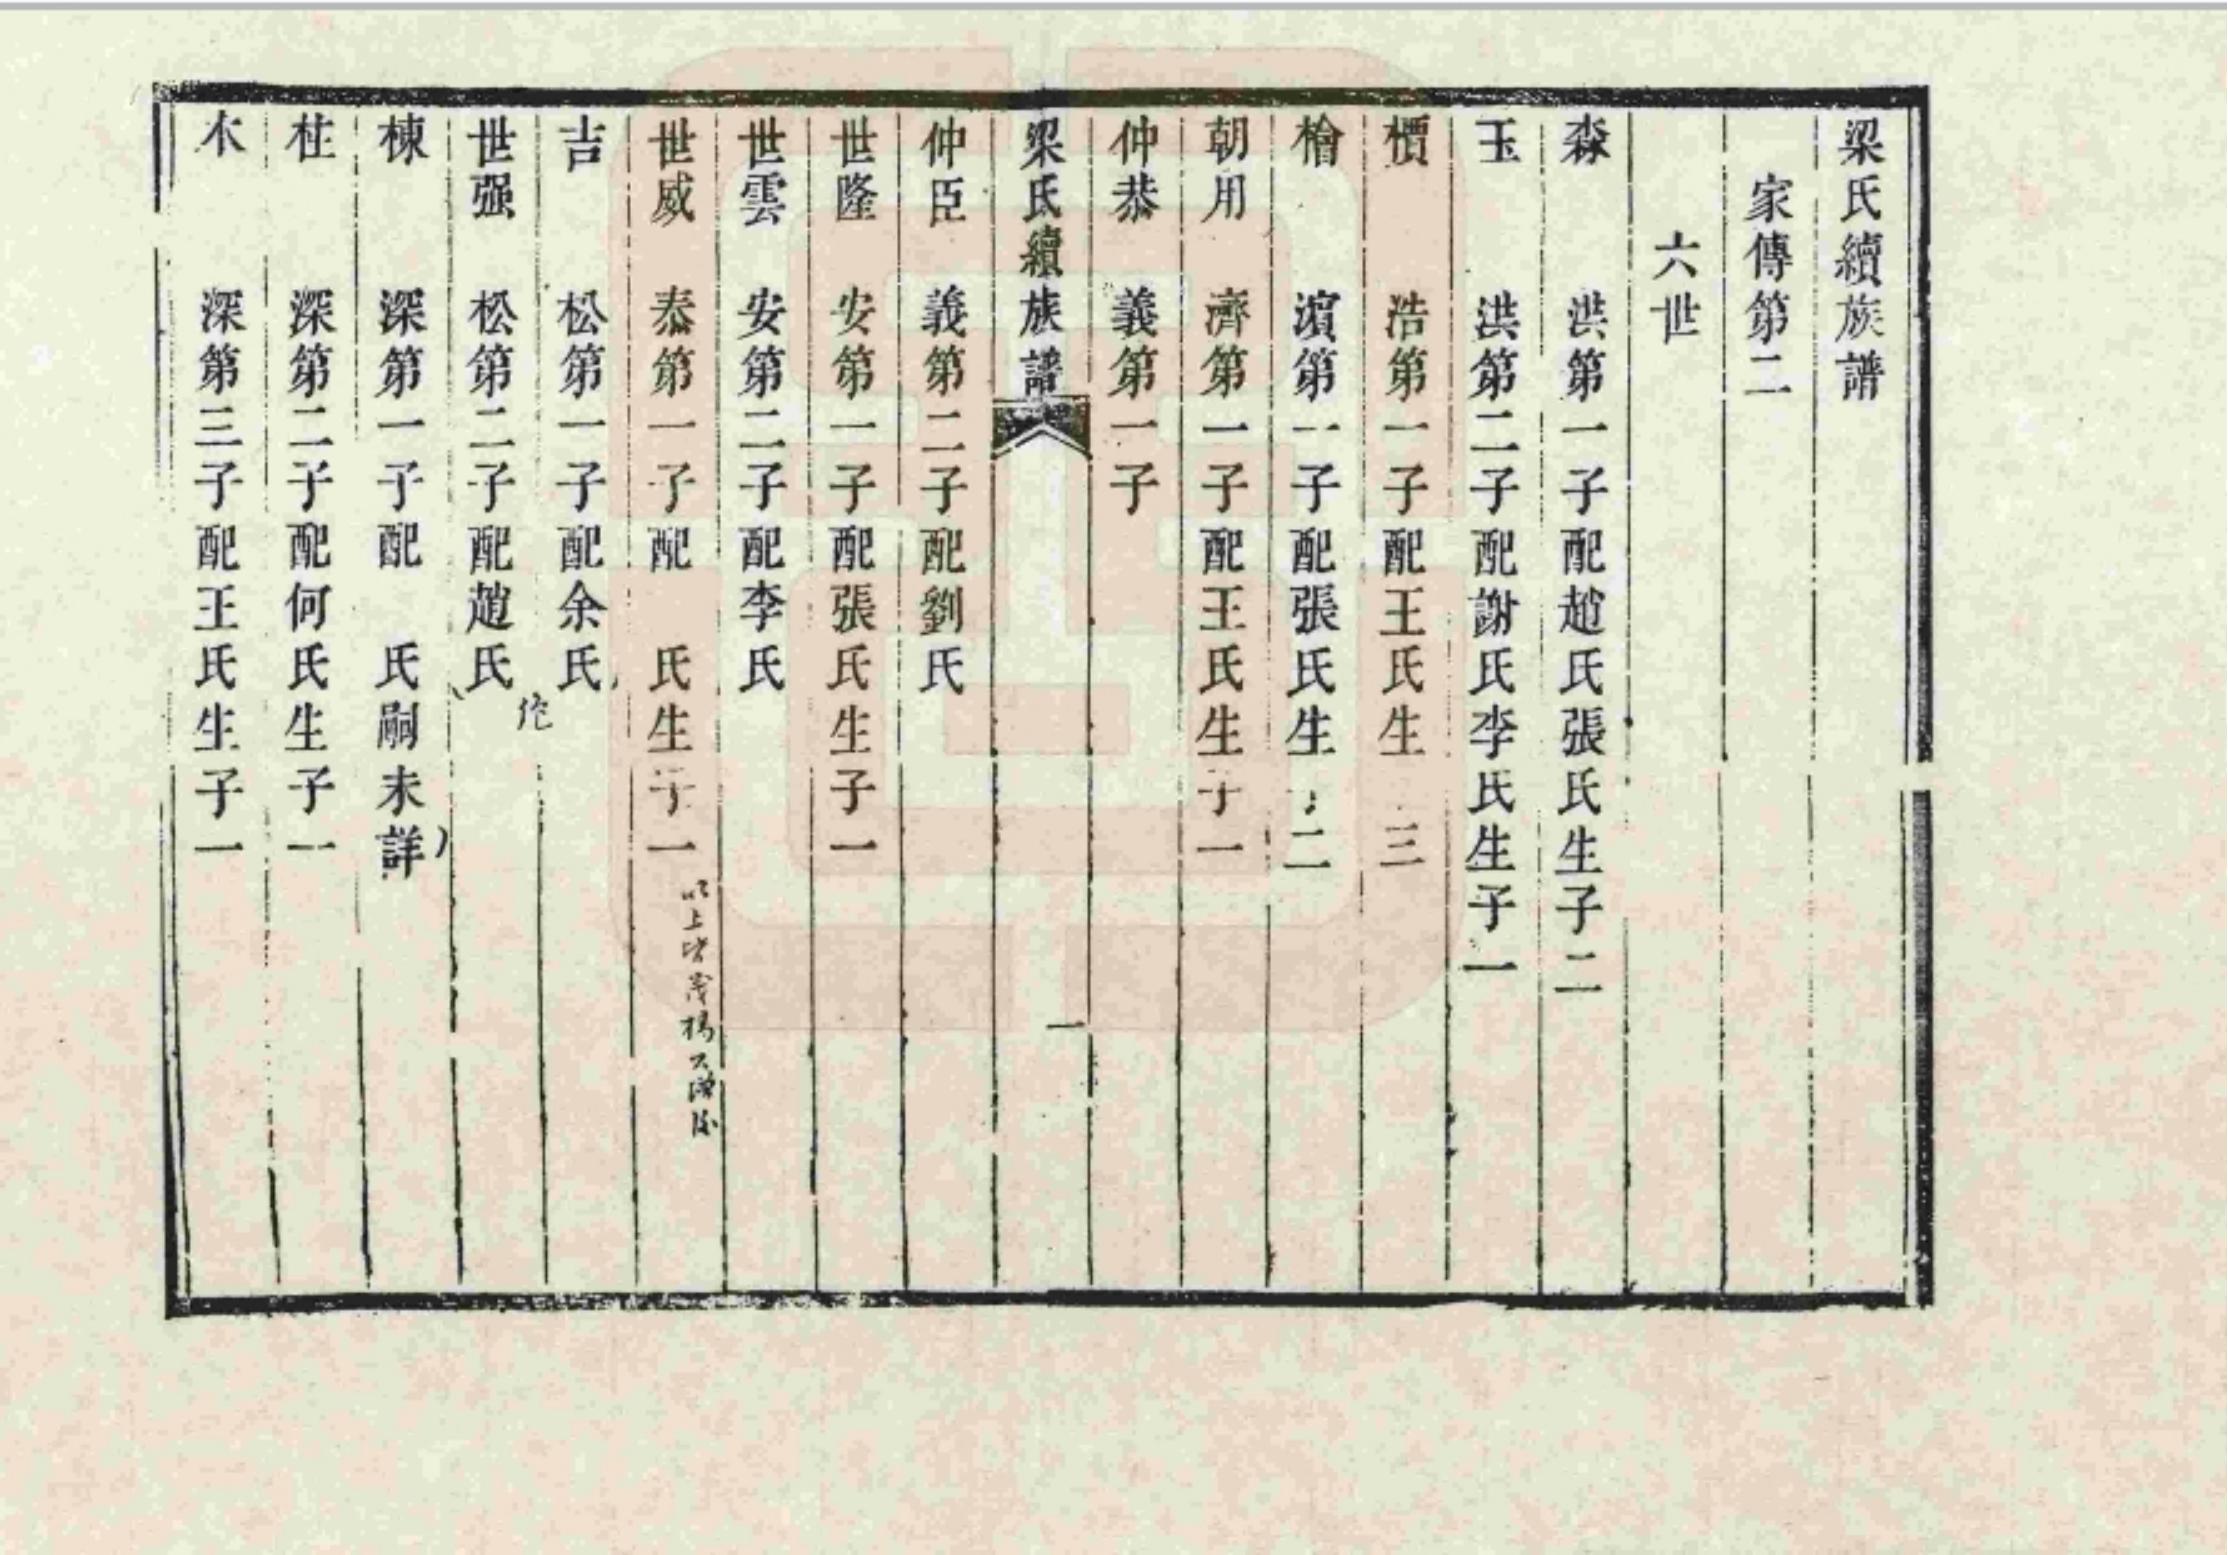 梁氏續族譜
家傳第二
六世
森 洪第一子配趙氏張氏生子二
玉 洪第二子配謝氏李氏生子一
檟 浩第一子配王氏生 三
檜 濱第一子配張氏生 二
朝用 濟第一子配王氏生子一
仲恭 義第一子
梁氏續族譜 一
仲臣 義第二子配劉氏
世隆 安第一子配張氏生子一
世雲 安第二子配李氏
世威 泰第一子配 氏生子一
以上皆茂楊
吉 松第一子配余氏
世强 松第二子配趙氏
棟 深第一子配 氏嗣未詳
柱 深第二子配何氏生子一
木 深第三子配王氏生子一